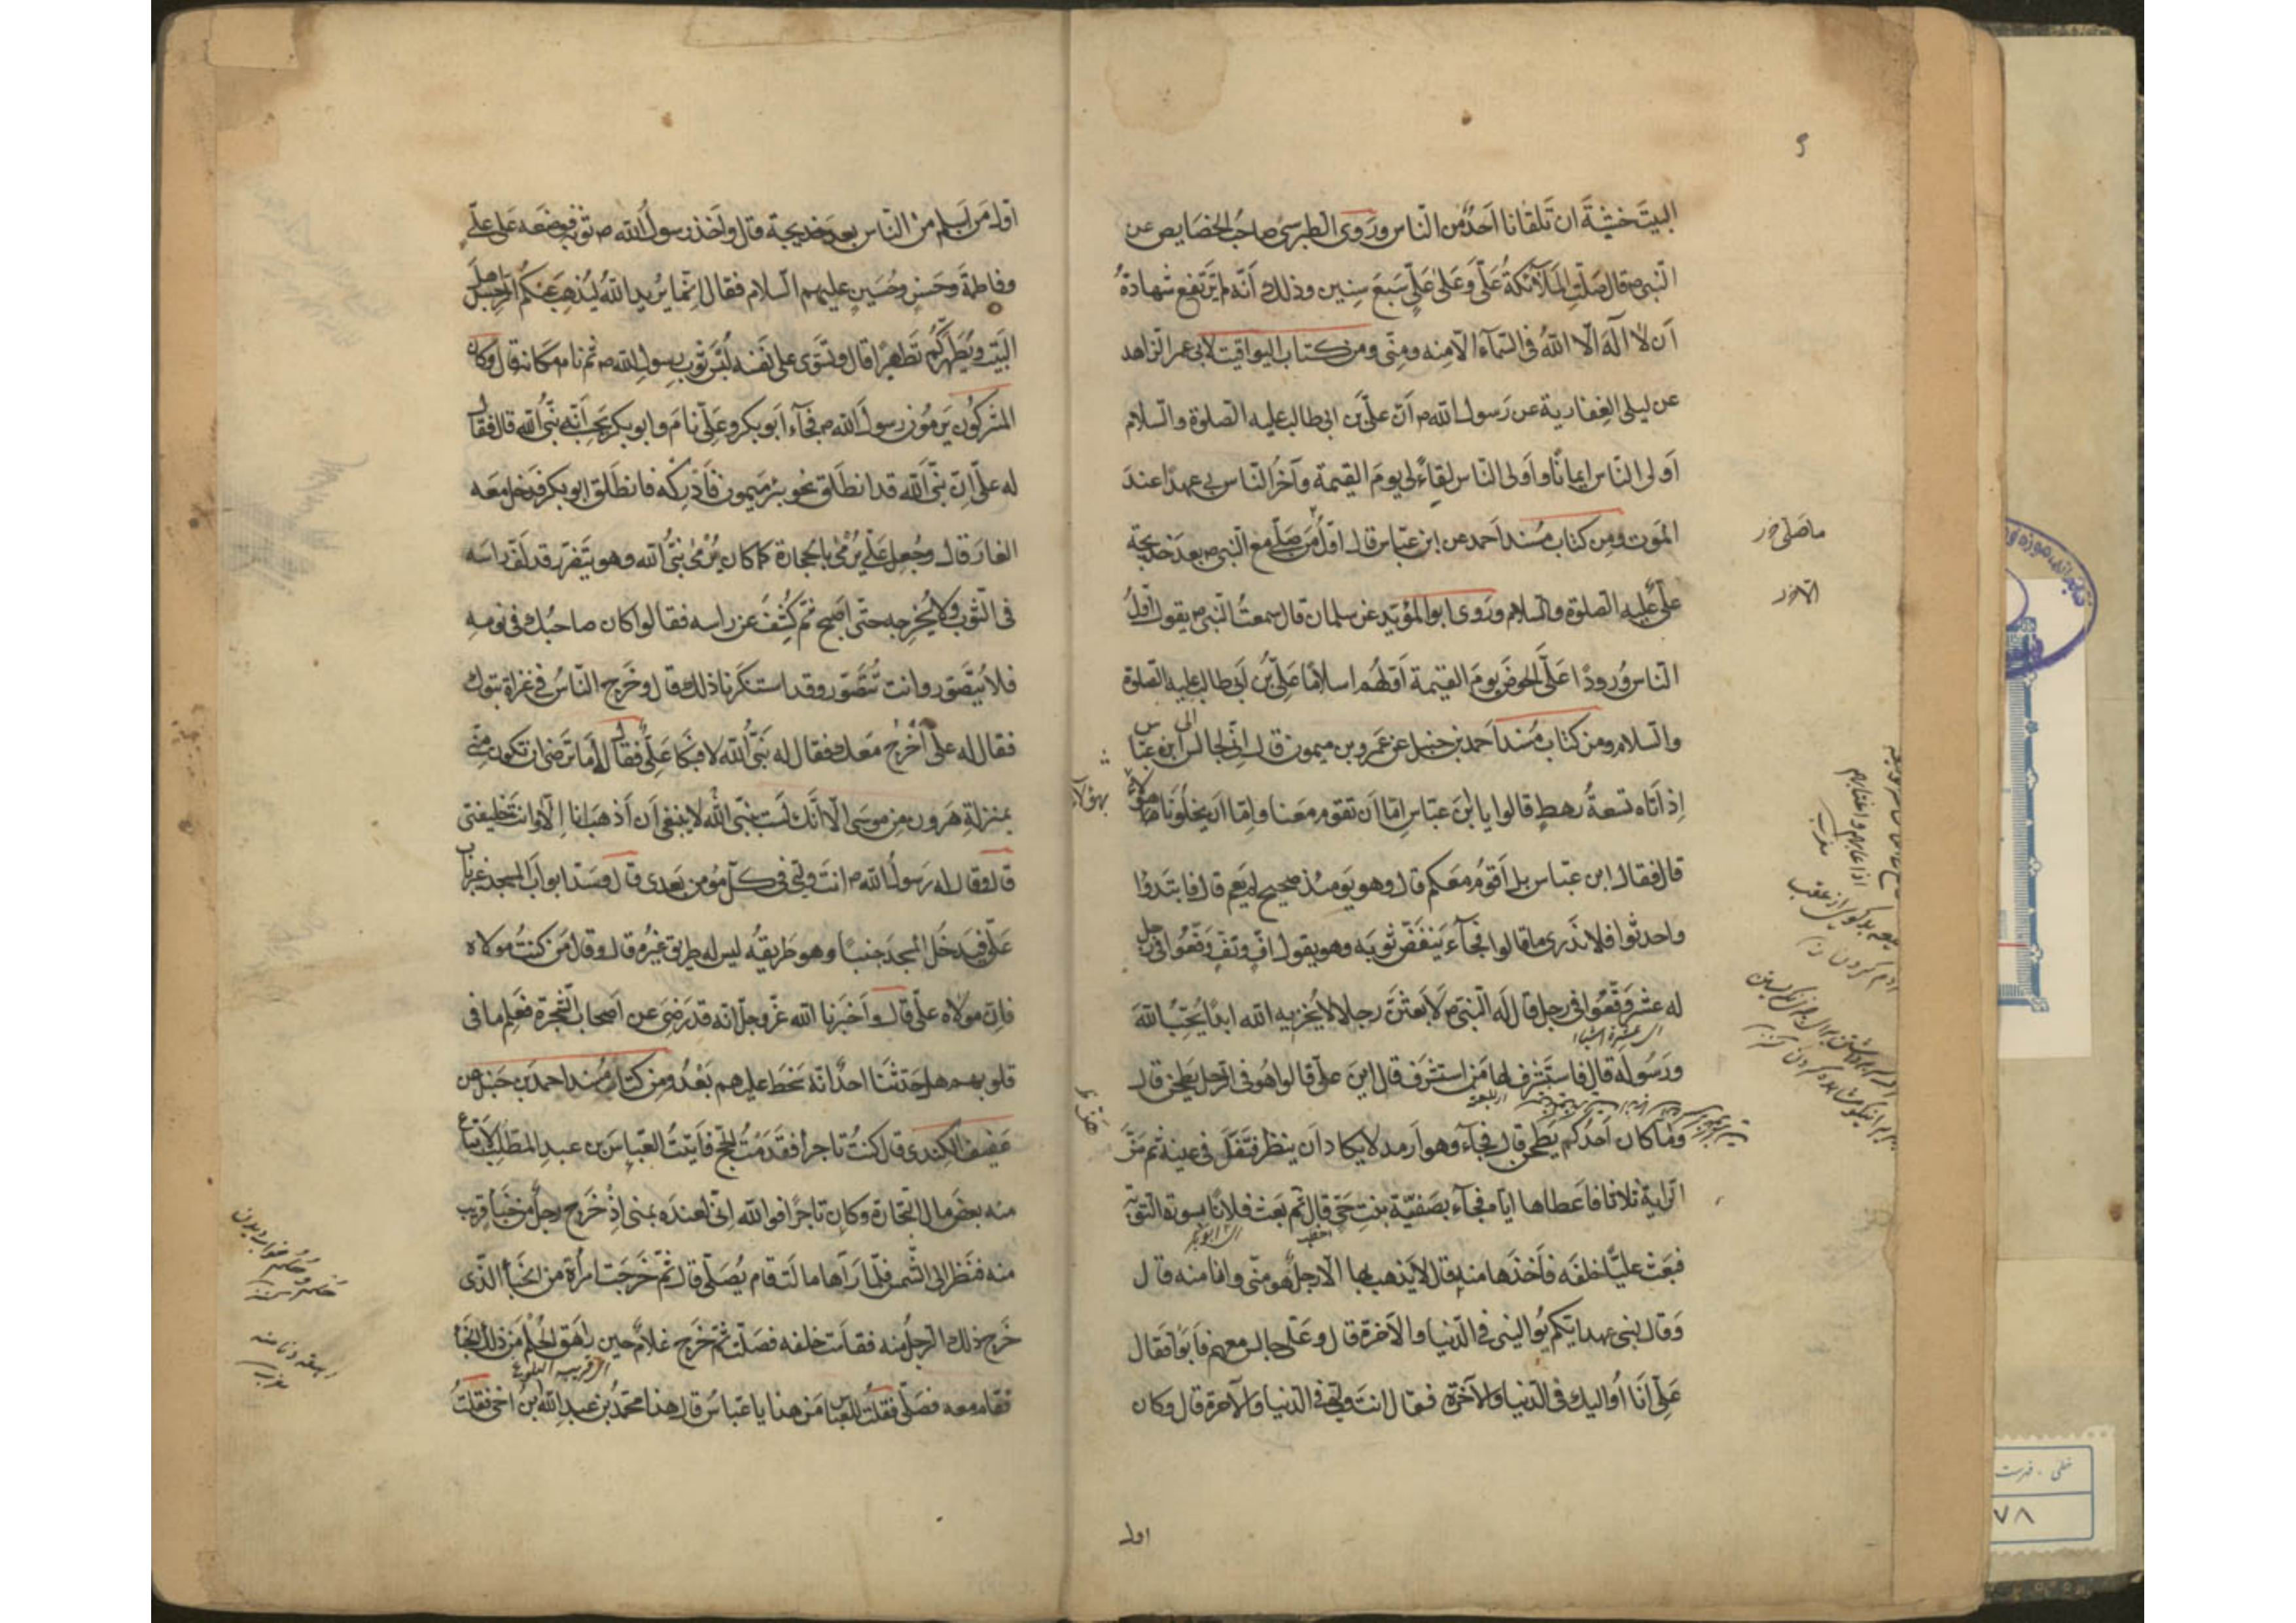 البيت خشية ان تلقانا احد من الناس وروى الطبرسي صاحب الخصايص عن
النبي ص قال صلت الملائكة علي وعلى علي سبع سنين وذلك انه لم ترتفع شهادة
ان لا اله الا الله في السماء الا منه ومني ومن كتاب اليواقيت لابي عمر الزاهد
عن ليلى الغفارية عن رسول الله ص ان علي بن ابي طالب عليه الصلوة والسلام
اولى الناس ايمانا واولى الناس لقاء لي يوم القيمة وآخر الناس بي عهدا عند
الموت ومن كتاب مسند احمد عن ابن عباس قال اول من صلى مع النبي ص بعد خديجة
علي عليه الصلوة والسلام وروى ابو المؤيد عن سلمان قال سمعت النبي ص يقول اول
الناس ورودا على الحوض يوم القيمة اولهم اسلاما علي بن ابي طالب عليه الصلوة
والسلام ومن كتاب مسند احمد بن حنبل عن عمرو بن ميمون قال اني لجالس الى ابن عباس
اذ اتاه تسعة رهط قالوا يا ابن عباس اما ان تقوم معنا واما ان يخلونا هؤلاء
قال فقال ابن عباس بل اقوم معكم قال وهو يومئذ صحيح لم يعم قال فابتدؤا
واحدثوا فلا ندري ما قالوا فجآء ينفض ثوبه وهو يقول اف وتف وقعوا في رجل
له عشر وقعوا في رجل قال له النبي ص لابعثن رجلا لا يخزيه الله ابدا يحب الله
اى عشرة اشياء
ورسوله قال فاستشرف لها من استشرف قال اين علي قالوا هو في الرحل يطحن قال
وما كان احدكم يطحن قال فجآء وهو ارمد لا يكاد ان ينظر فتفل في عينه ثم هز
الراية ثلاثا فاعطاها اياه فجآء بصفية بنت حي قال ثم بعث فلانا بسورة التوبة
اى ابو بكر
فبعث عليا خلفه فاخذها منه قال لا يذهب بها الا رجل هو مني وانا منه قال
وقال لبني عمه ايكم يواليني في الدنيا والآخرة قال وعلي جالس معهم فابوا فقال
علي انا اواليك في الدنيا والآخرة فقال انت وليي في الدنيا والآخرة قال وكان
اول
اول من اسلم من الناس بعد خديجة قال واخذ رسول الله ص ثوبه فوضعه على علي
وفاطمة وحسن وحسين عليهم السلام فقال انما يريد الله ليذهب عنكم الرجس اهل
البيت ويطهركم تطهيرا قال وشرى علي نفسه لبس ثوب رسول الله ص ثم نام مكانه قال وكان
المشركون يرمون رسول الله ص فجآء ابو بكر وعلي نام وابو بكر يحسب انه نبي الله قال فقال
له علي ان نبي الله قد انطلق نحو بئر ميمون فادركه فانطلق ابو بكر فدخل معه
الغار قال وجعل علي يرمى بالحجارة كما كان يرمى نبي الله وهو يتضور قد لف راسه
في الثوب ولا يخرجه حتى اصبح ثم كشف عن راسه فقالوا كان صاحبك في نومه
فلا يتضور وانت تتضور وقد استنكرنا ذلك قال وخرج الناس في غزاة تبوك
فقال له علي اخرج معك فقال له نبي الله لا فبكا علي فقال له اما ترضى ان تكون مني
بمنزلة هرون من موسى الا انك لست بنبي الله لا ينبغي ان اذهب انا الا وانت خليفتي
قال وقال له رسول الله ص انت وليي في كل مؤمن بعدي قال وسد ابواب المسجد غير باب
علي فيدخل المسجد جنبا وهو طريقه ليس له طريق غيره قال وقال من كنت مولاه
فان مولاه علي قال واخبرنا الله عز وجل انه قد رضي عن اصحاب الشجرة فعلم ما في
قلوبهم هل حدثنا احدا انه سخط عليهم بعد ومن كتاب مسند احمد بن حنبل عن
عفيف الكندي قال كنت تاجرا فقدمت الحج فاتيت العباس بن عبد المطلب لابتاع
منه بعض مال التجارة وكان تاجرا فوالله اني لعنده بمنى اذ خرج رجل من خبأ قريب
منه فنظر الى الشمس فلما رآها مالت قام يصلي قال ثم خرجت امرأة من الخبأ الذي
خرج ذلك الرجل منه فقامت خلفه فصلت ثم خرج غلام حين راهق الحلم من ذلك الخبأ
اى قريب البلوغ
فقام معه فصلى فقلت للعباس من هذا يا عباس قال هذا محمد بن عبد الله بن اخي فقلت